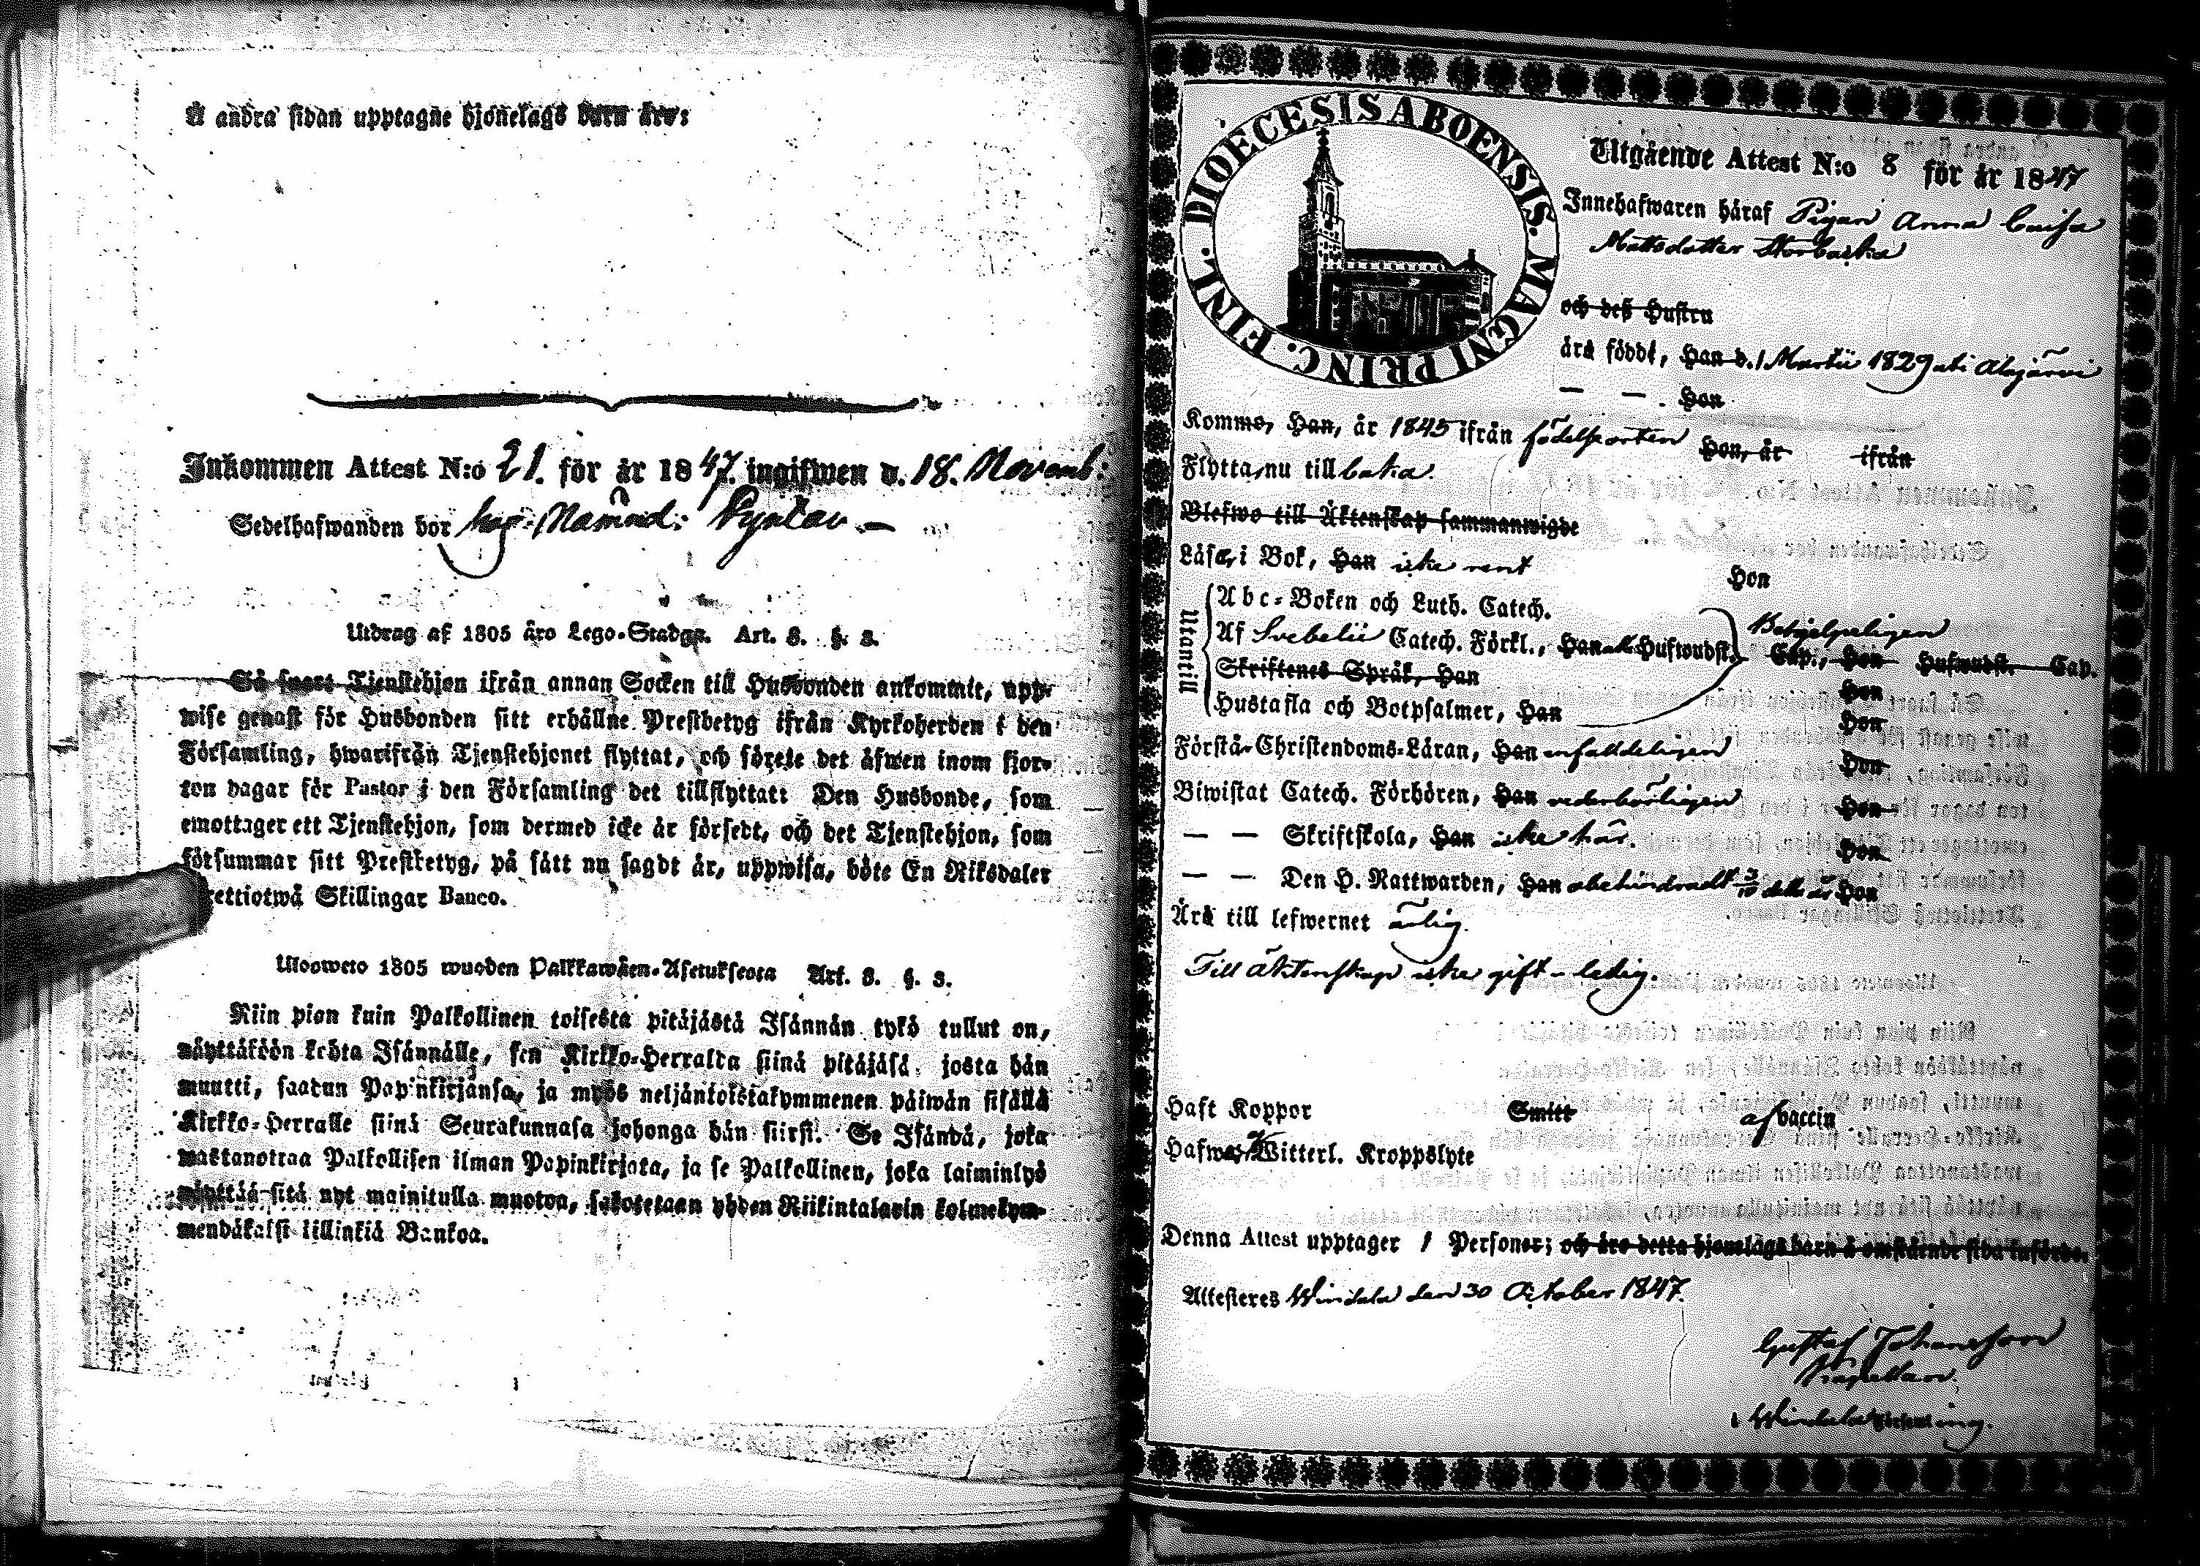 Å andra sidan upptagne hjonelags barn äro:
Inkommen Attest N:o 21. för år 1847. ingifwen d. 18. Novemb:
Sedelhafwanden bor
Utdrag af 1805 års Lego-Stadga. Art. 8. §. 3.
Så snart Tjenstehjon ifrån annan Socken till Husbonden ankommit, upp-
wise genast för Husbonden sitt erhållne Prestbetyg ifrån Kyrkoherden i den
Församling, hwarifrån Tjenstehjonet flyttat, och förete det äfwen inom fjor-
ton dagar för Pastor i den Församling det tillflyttatt Den Husbonde, som
emottager ett Tjenstehjon, som dermed icke är försedt, och det Tjenstehjon, som
försummar sitt Prestbetyg, på sätt nu sagdt är, uppwisa, böte En Riksdaler
Trettiotwå Skillingar Banco.
Ulosweto 1805 wuoden Palkkawäen-Asetuksesta Art. 8. §. 3.
Niin pian kuin Palkollinen toisesta pitäjästä Isännän tykö tullut on,
näyttäköön kohta Isännälle, sen Kirkko-Herralta siinä pitäjäsä, josta hän
muutti, saadun Papinkirjansa, ja myös neljäntoistakymmenen päiwän sisällä
Kirkko-Herralle siinä Seurakunnasa johonga hän siirsi. Se Isändä, joka
wastanottaa Palkollisen ilman Papinkirjata, ja se Palkollinen, joka laiminlyö
näyttää sitä nyt mainitulla muotoa, sakotetaan yhden Riikintalarin kolmekym-
mendäkaksi killinkiä Bankoa.
DIOECESIS ABOENSIS. MAGNI PRINC. FINL.
Utgående Attest N:o 8 för år 1847
Innehafwaren häraf Pigan Anna Caisa
Mattsdotter Storbacka
och deß Hustru
äro födde, Han d. 1 Martii 1829 uti Alajärvi
— — . Hon
Komme, Han, år 1845 ifrån födelseorten Hon, år ifrån
Flytta, nu till baka.
Blefwo till Äktenskap sammanwigde
Läsa, i Bok, Han icke rent Hon
Utantill
Abc-Boken och Luth. Catech.
Af Svebelii Catech. Förkl., Han alla Hufwudst. Begripeligen Cap., Hon Hufwudst. Cap.
Skriftenes Språk, Han Hon
Hustafla och Botpsalmer, Han Hon
Förstå Christendoms-Läran, Han enfaldeligen Hon
Biwistat Catech. Förhören, Han vederbörligen Hon
— — Skriftskola, Han icke här. Hon
— — Den H. Nattwarden, Han obehindradt 3/10 detta år Hon
Ära till lefwernet ärlig.
Till äktenskap icke gift - ledig.
Haft Koppor Smitt af vaccin
Hafwa, Witterl. Kroppslyte
Denna Attest upptager 1 Personer; och äro detta hjonelags barn å omstående sida införde.
Attesteras Windala den 30 October 1847.
Gustaf Johansson
Kapellan
i Windala